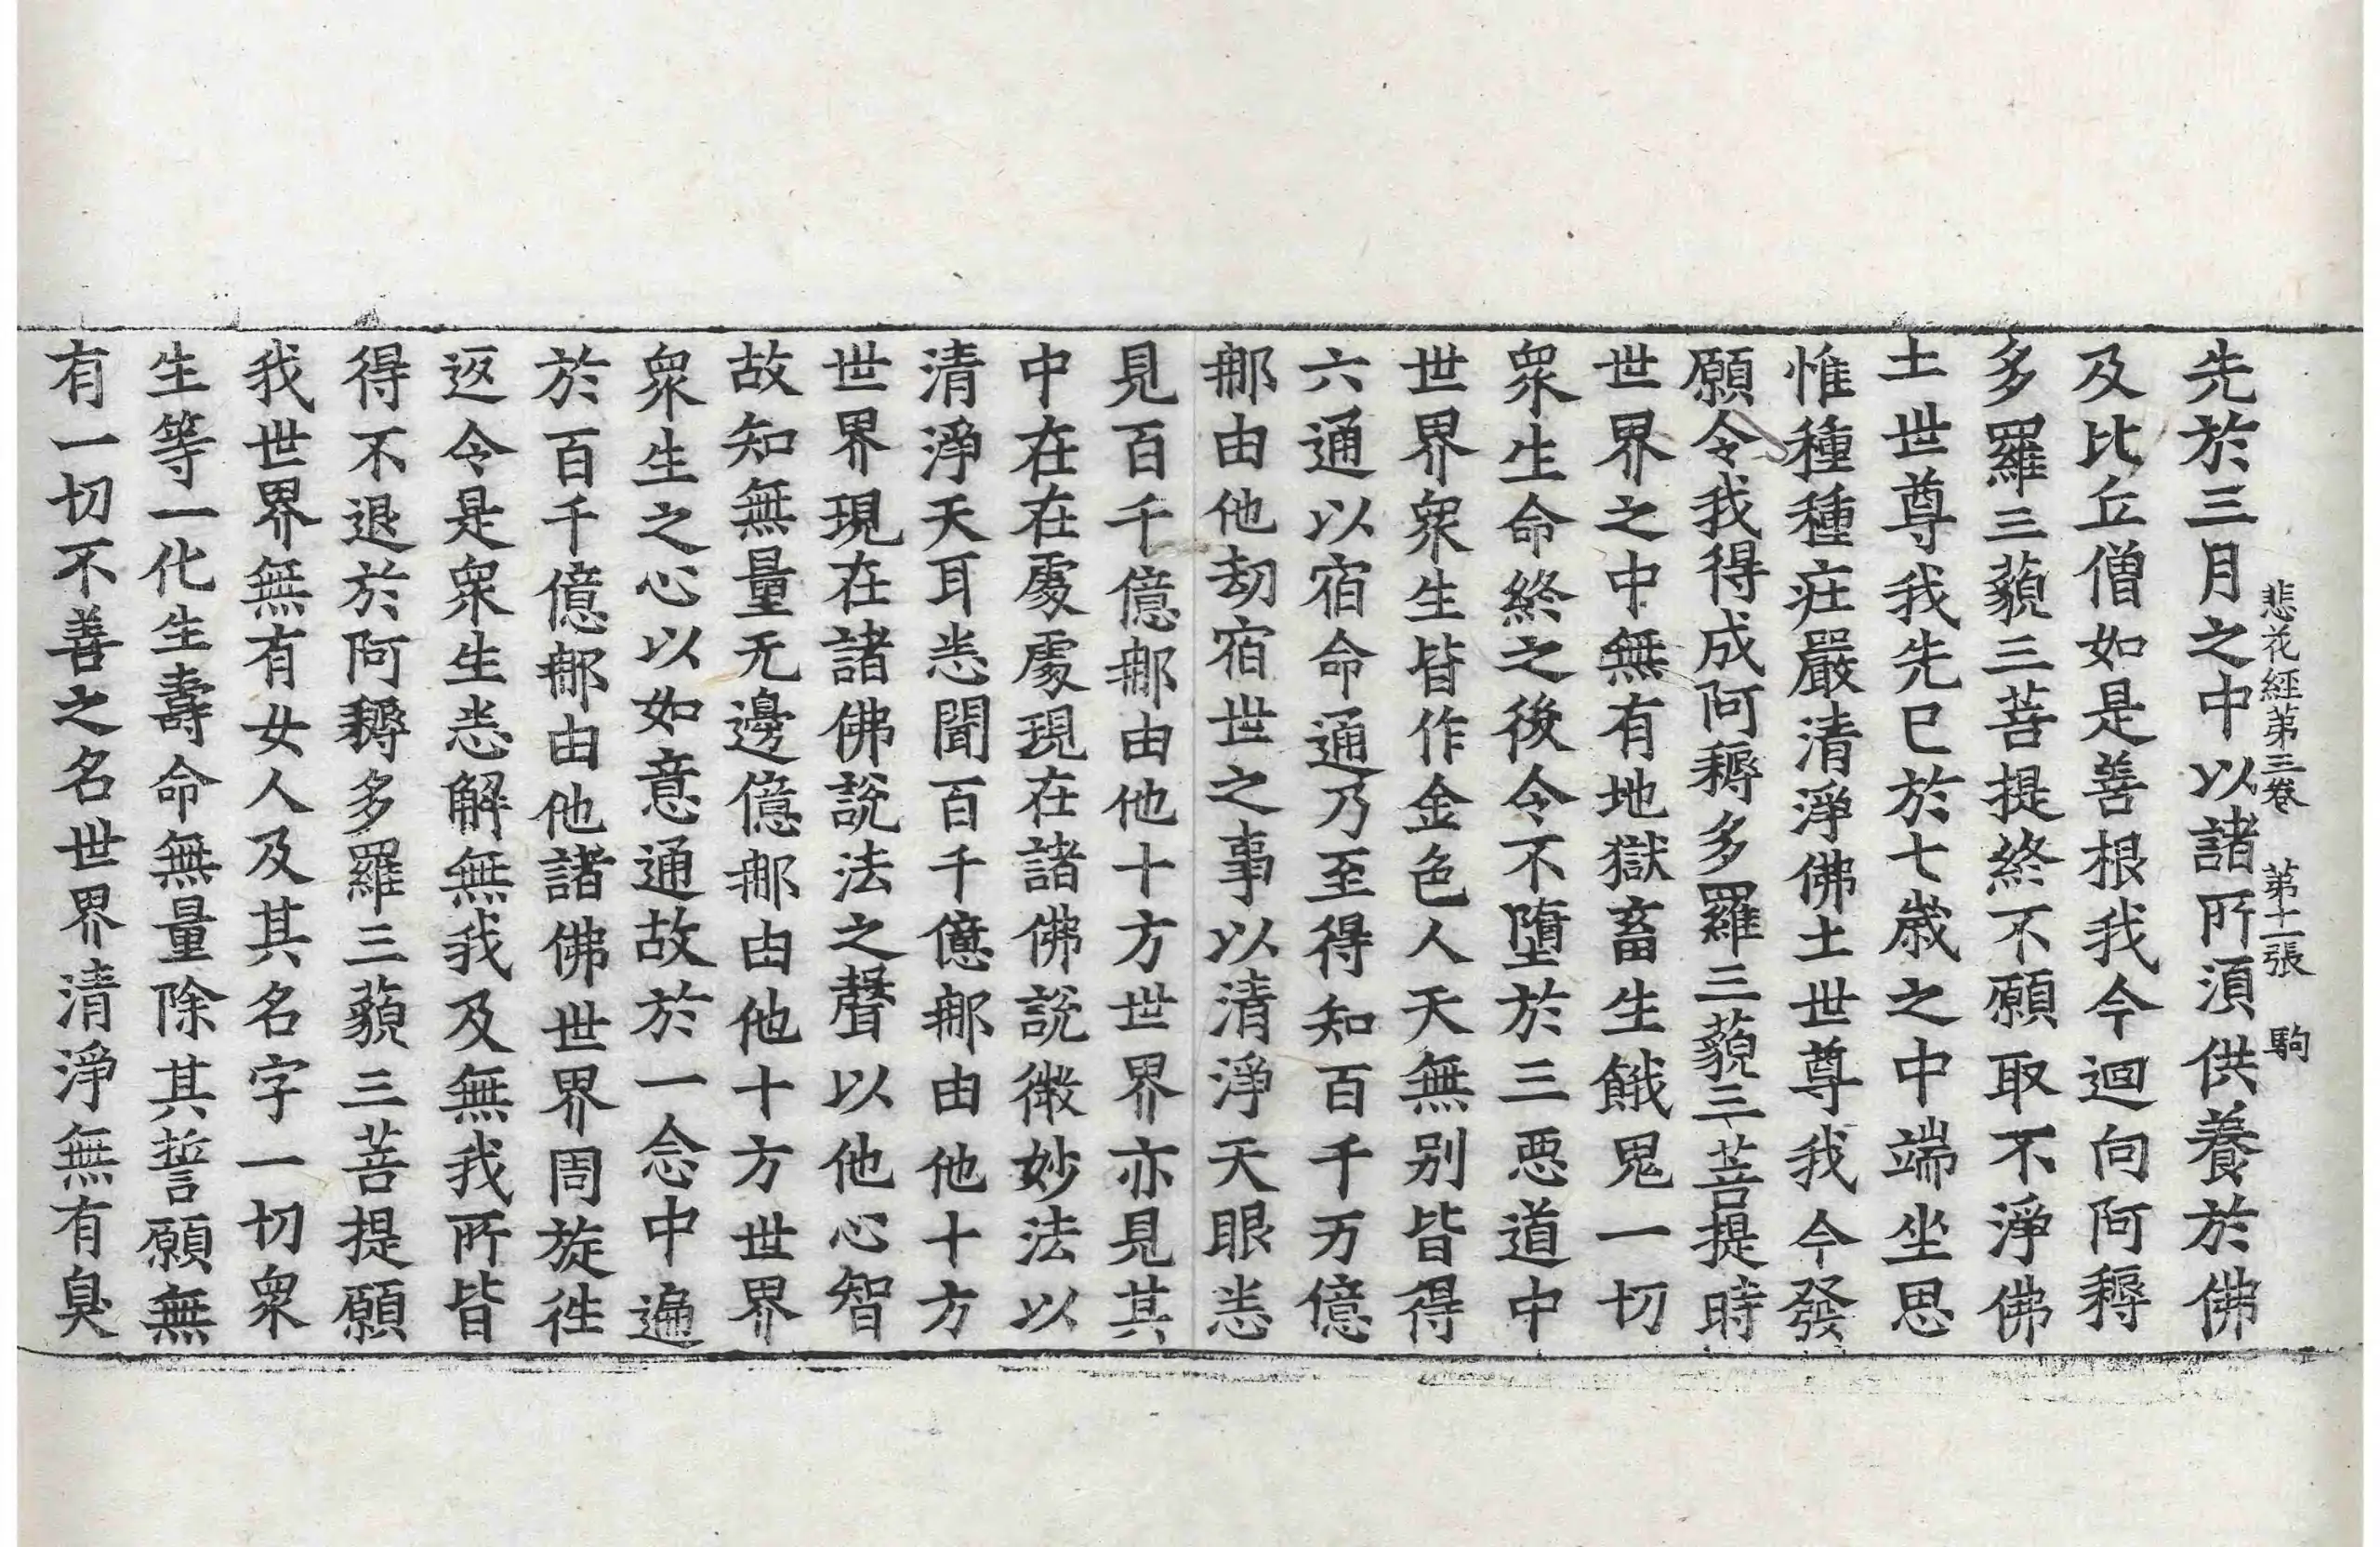 悲花經第三卷 第十一張 駒
先於三月之中以諸所湏供養於佛
及比丘僧如是善根我今迴向阿耨
多羅三藐三菩提終不願取不淨佛
土世尊我先已於七歲之中端坐思
惟種種莊嚴清淨佛土世尊我今發
願令我得成阿耨多羅三藐三菩提時
世界之中無有地獄畜生餓鬼一切
眾生命終之後令不墮於三惡道中
世界眾生皆作金色人天無別皆得
六通以宿命通乃至得知百千万億
那由他劫宿世之事以清淨天眼悉
見百千億那由他十方世界亦見其
中在在處處現在諸佛說微妙法以
清淨天耳悉聞百千億那由他十方
世界現在諸佛說法之聲以他心智
故知無量无邊億那由他十方世界
眾生之心以如意通故於一念中遍
於百千億那由他諸佛世界周旋往
返令是眾生悉解無我及無我所皆
得不退於阿耨多羅三藐三菩提願
我世界無有女人及其名字一切眾
生等一化生壽命無量除其誓願無
有一切不善之名世界清淨無有臭